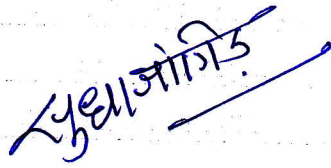 सुधा जांगिड़